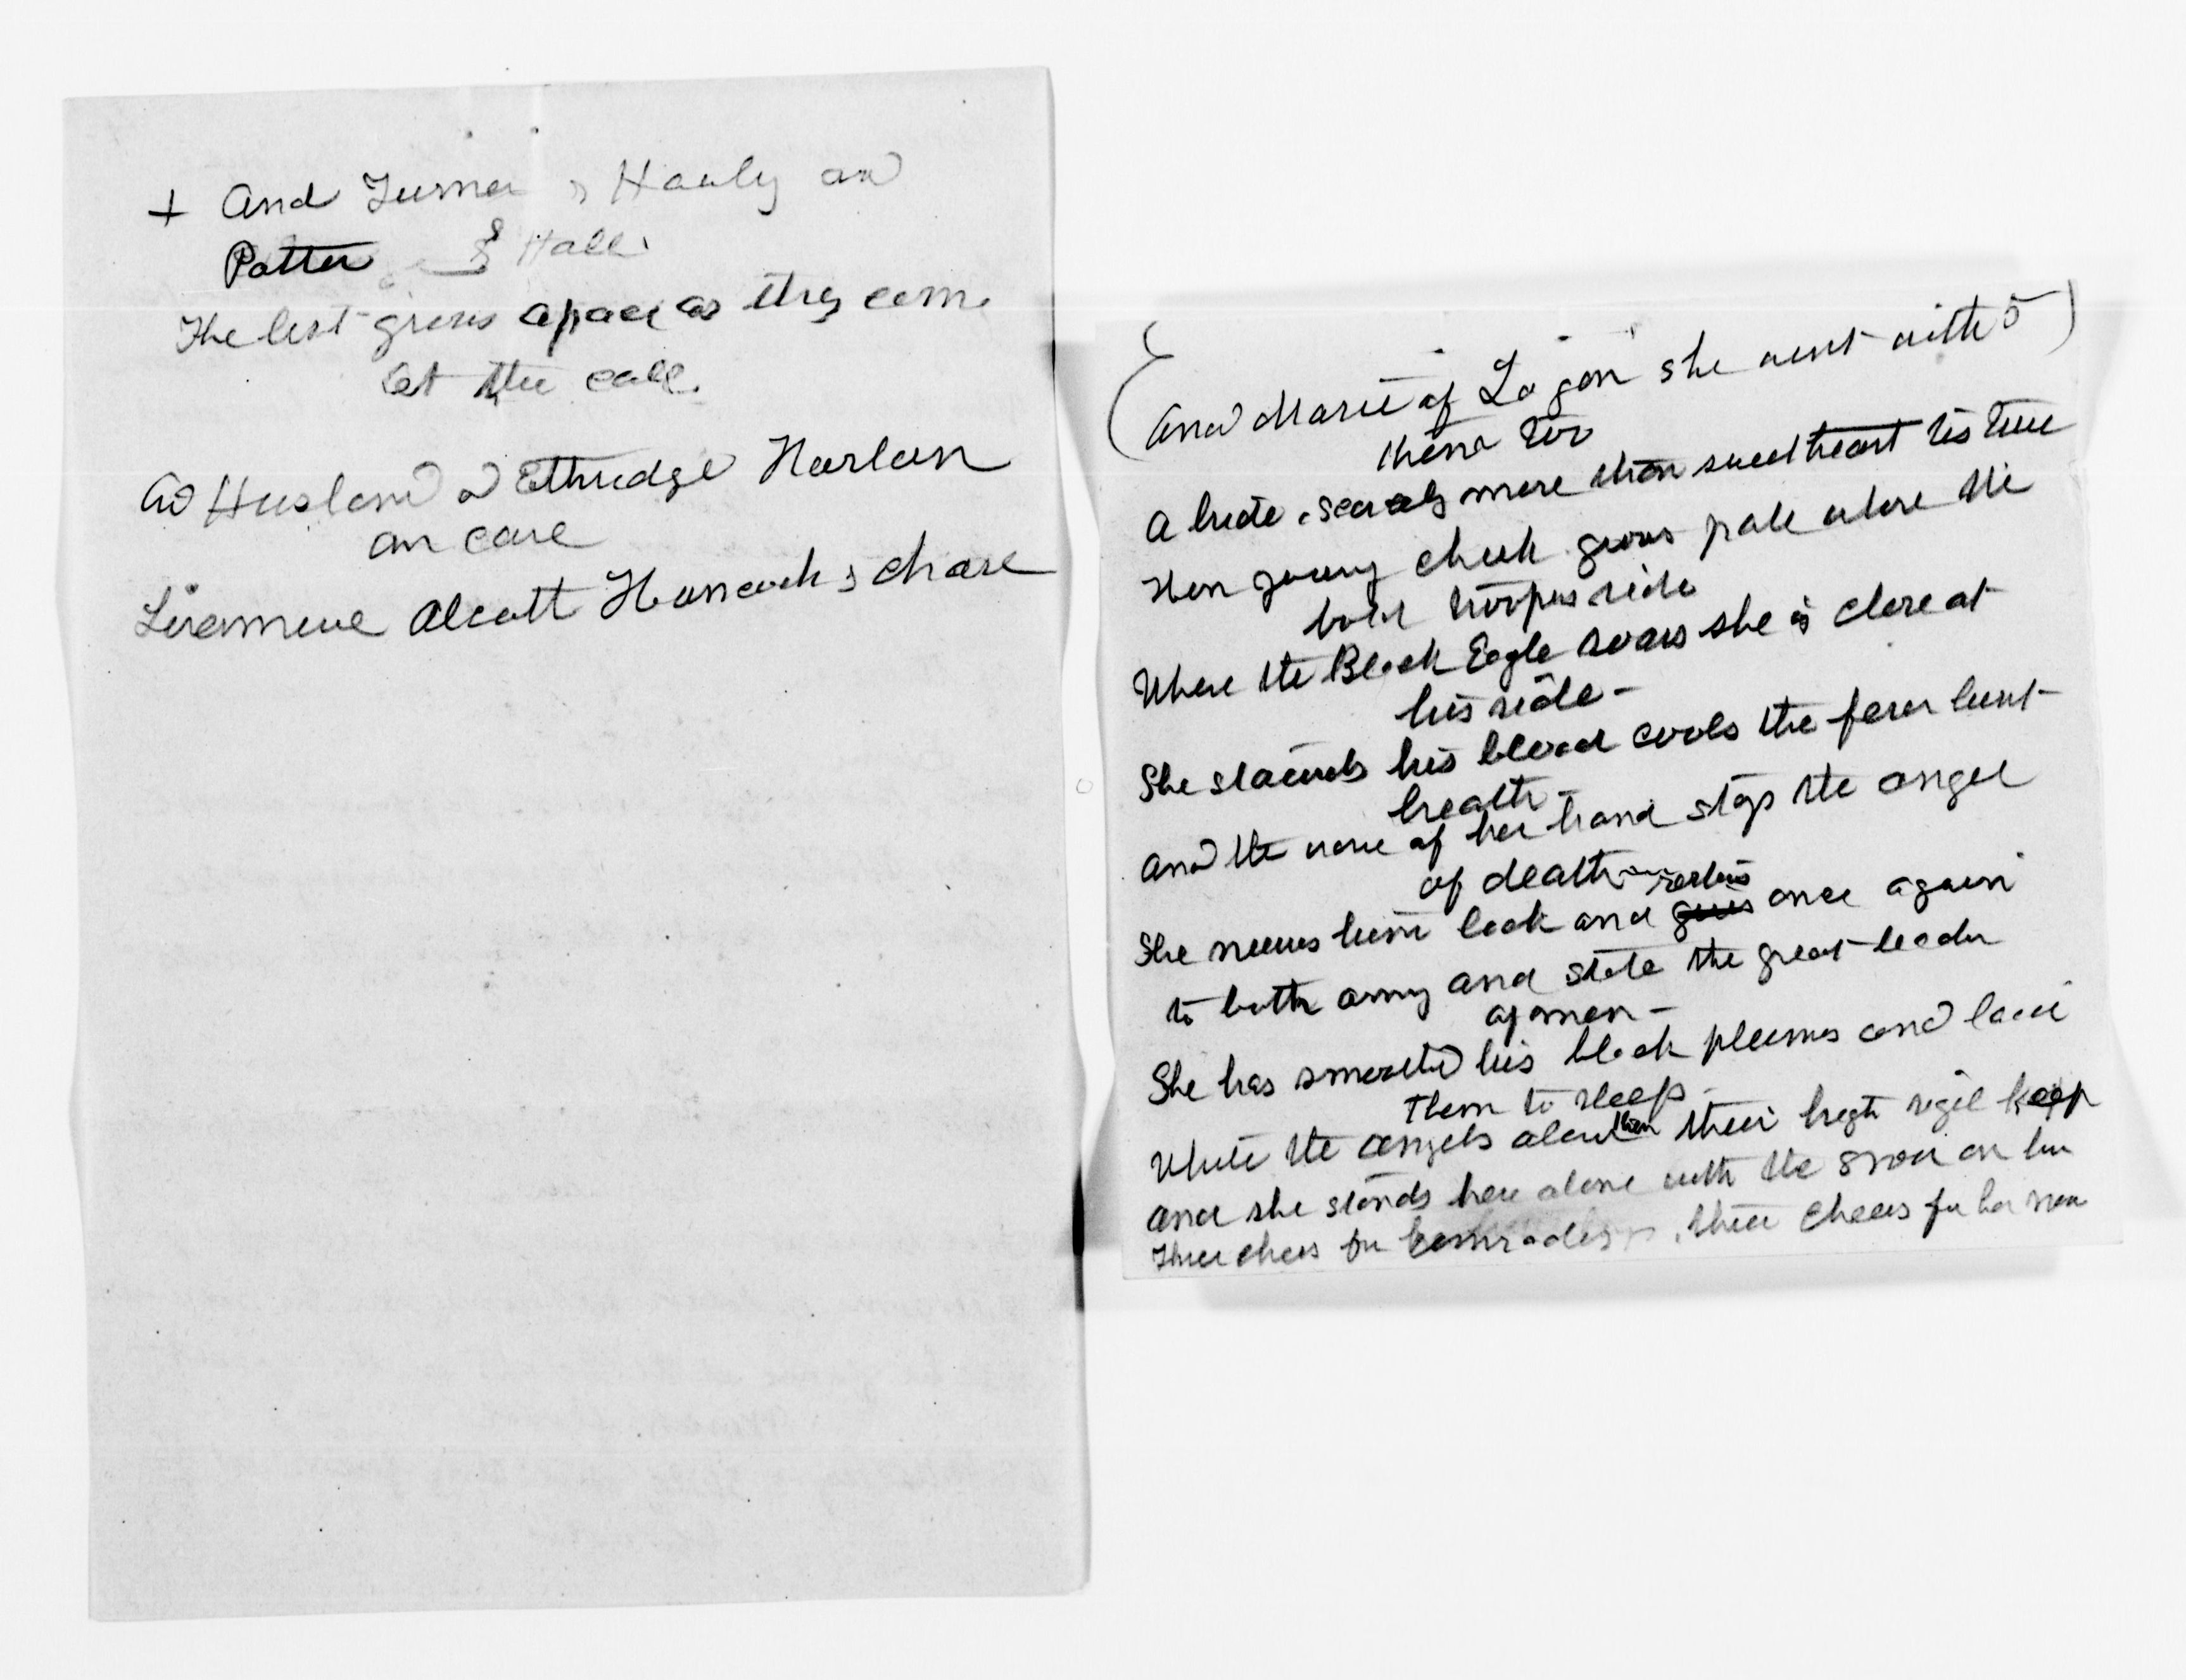 + And Turner & Hawly and
Potter & Hall
The list grows apace as they come
at the call.
And Husband & Ethridge Harlan
an care
Livermore Alcott Hancock & Chase
5
(And Marie of Logan she went with)
them too
A bride, scarcely more than sweetheart tis true
Her young cheek grows pale where the
bold troopers ride
Where the Black Eagle soars she is close at
his side -
She staunchs his blood cools the fever burnt
breath -
And the wave of her hand stops the angel
of death -
She nurses him back and restores once again
to both army and state the great leader
of men -
She has smoothed his black plumes and laid
them to sleep -
While the angels above them their high vigil keep
And she stands here alone with the snow on her
Three cheers for comrades, three cheers for her now